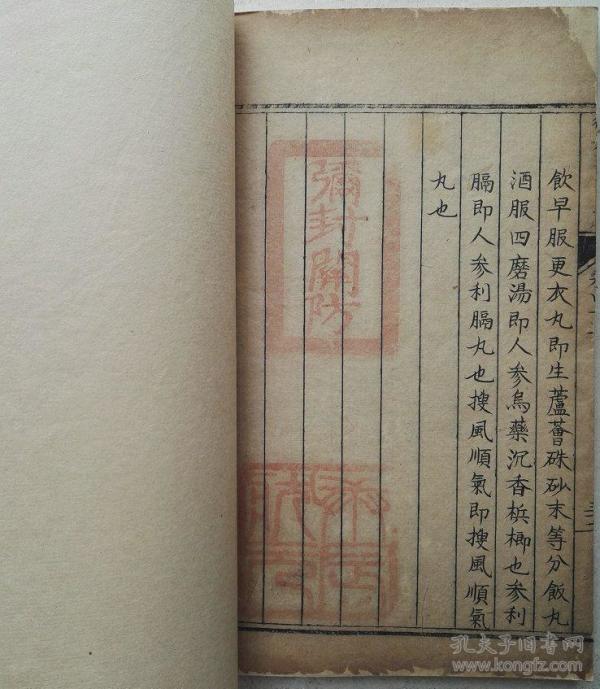 飲早服更衣丸即生蘆薈硃砂末等分飯丸
酒服四磨湯即人參烏藥沉香梹榔也參利
膈即人參利膈丸也搜風順氣即搜風順氣
丸也
彌封關防
孔夫子旧书网
www.kongfz.com